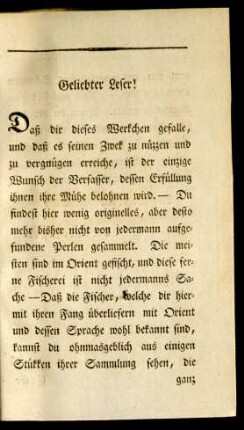 Geliebter Leser!
Daß dir dieses Werkchen gefalle,
und daß es seinen Zwek zu nüzzen und
zu vergnügen erreiche, ist der einzige
Wunsch der Verfasser, dessen Erfüllung
ihnen ihre Mühe belohnen wird. — Du
findest hier wenig originelles, aber desto
mehr bisher nicht von jedermann aufge-
fundene Perlen gesammelt. Die mei-
sten sind im Orient gefischt, und diese fer-
ne Fischerei ist nicht jedermanns Sa-
che — Daß die Fischer, welche dir hier-
mit ihren Fang überliefern mit Orient
und dessen Sprache wohl bekannt sind,
kannst du ohnmasgeblich aus einigen
Stükken ihrer Sammlung sehen, die
ganz